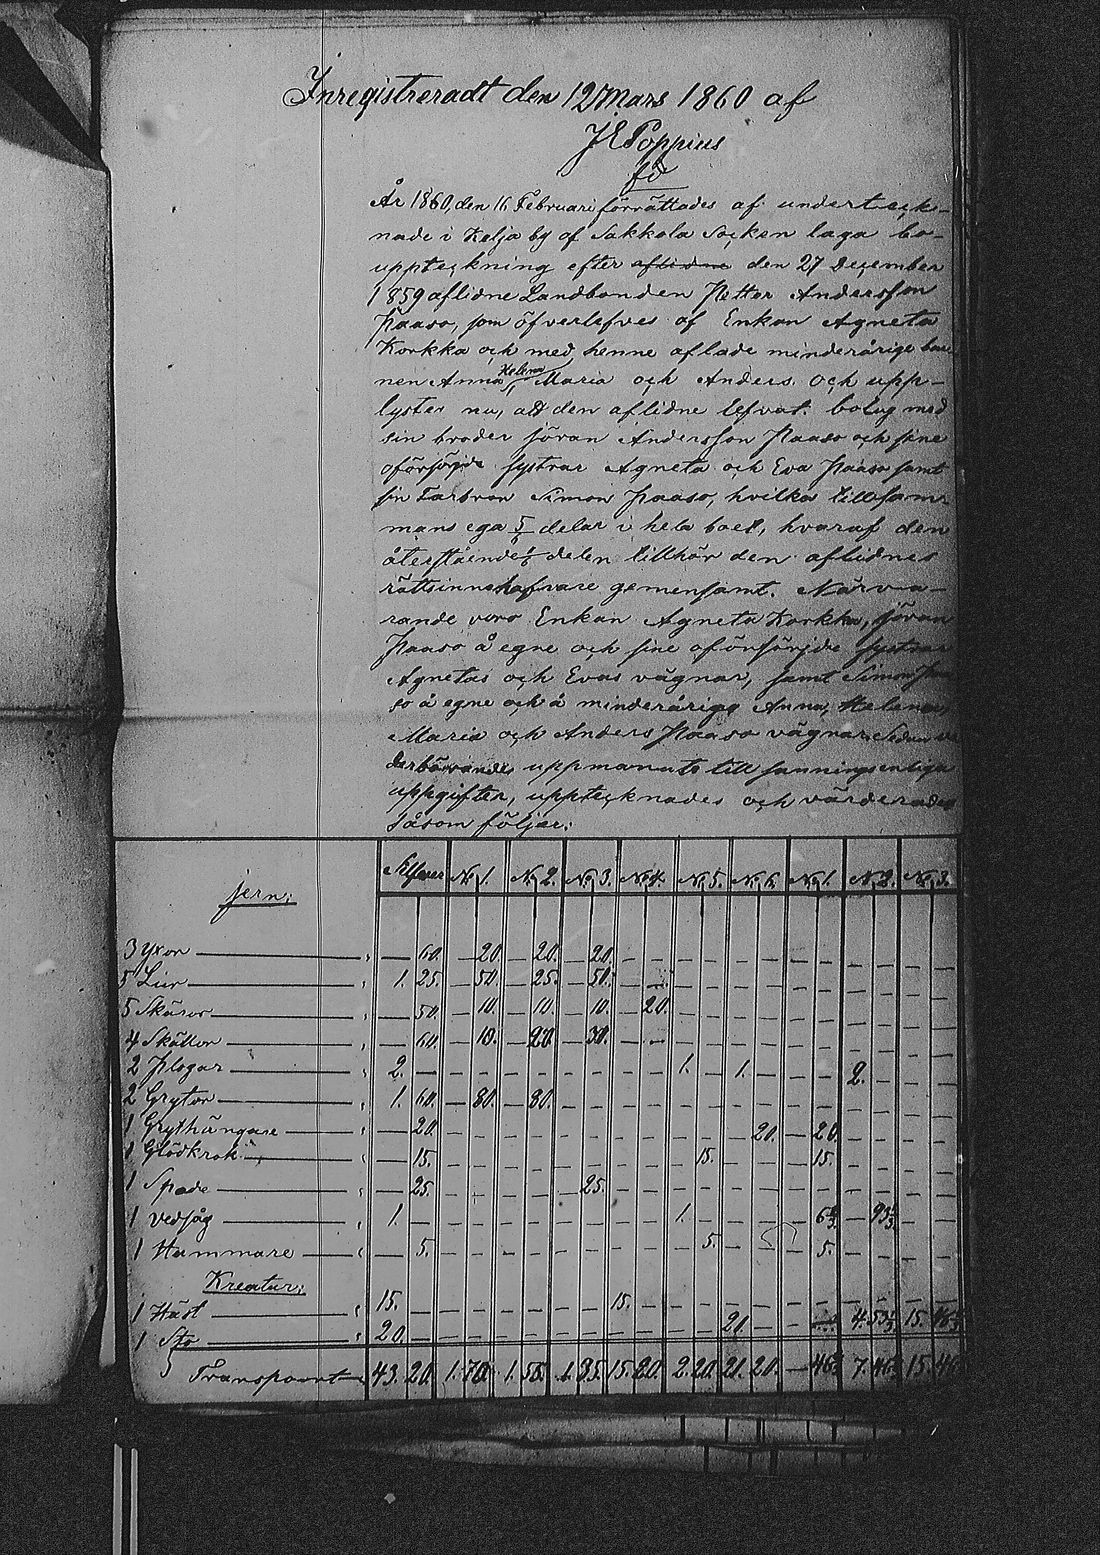 Inregistreradt den 12 Mars 1860 af
J E Poppius
År 1860, den 16 Februari förrättades af underteck-
nade i Kelja by af Sakkola Socken laga bo-
uppteckning efter aflidne den 27 December
1859 aflidne Landbonden Petter Andersson
Paaso, som öfverlefves af Enkan Agneta
Korkka och med henne aflade minderårige bar-
nen Anna Helena, Maria och Anders. och upp-
lystes nu, att den aflidne lefvat i bolag med
sin broder Jöran Andersson Paaso och sine
oförsörjde systrar Agneta och Eva Paaso samt
sin Farbror Simon Paaso, hvilka tillsam-
mans ega delar i hela boet, hvaraf den
återstående delen tillhör den aflidnes
rättsinnehafvare gemensamt. Närva-
rande voro Enkan Agneta Korkka, Jöran
Paaso å egne och sine oförsörjde systrar
Agnetas och Evas vägnar, samt Simon Paa
so å egne och å minderårige Anna, Helena,
Maria och Anders Paaso vägnar. Sedan
uppmanats till sanningsenliga
uppgifter, upptecknades och värderades
såsom följer:
Silfver No 1. No 2. No 3. No 4. No 5. No 6. No 1. No 2. No 3.
jern:
3 Yxor — 60. — 20. — 20. — 20.
5 Liar 1. 25. — 50. — 25. — 50.
5 Skäror — 50. — 10. — 10. — 10. — 20.
4 — 60. — 10. — 20. — 30.
2 Plogar 2. — 1. — 1. — 2.
2 Grytor 1. 60. — 80. — 80.
1 Grythängare — 20. — 20. — 20.
1 Glödkrok — 15. — 15. — 15.
1 Spade — 25. — 25.
1 Vedsåg 1. — 1. — 6⅔ — 93⅓
1 Hammare — 5. — 5. — 5.
Kreatur:
1 Häst 15. — 15.
1 Sto 20. — 20. — 4. 53⅓ 15. 46⅔
Transport 43. 20. 1. 70. 1. 55. 1. 35. 15. 20. 2. 20. 21. 20. — 46⅔ 7. 46⅔ 15. 46⅔